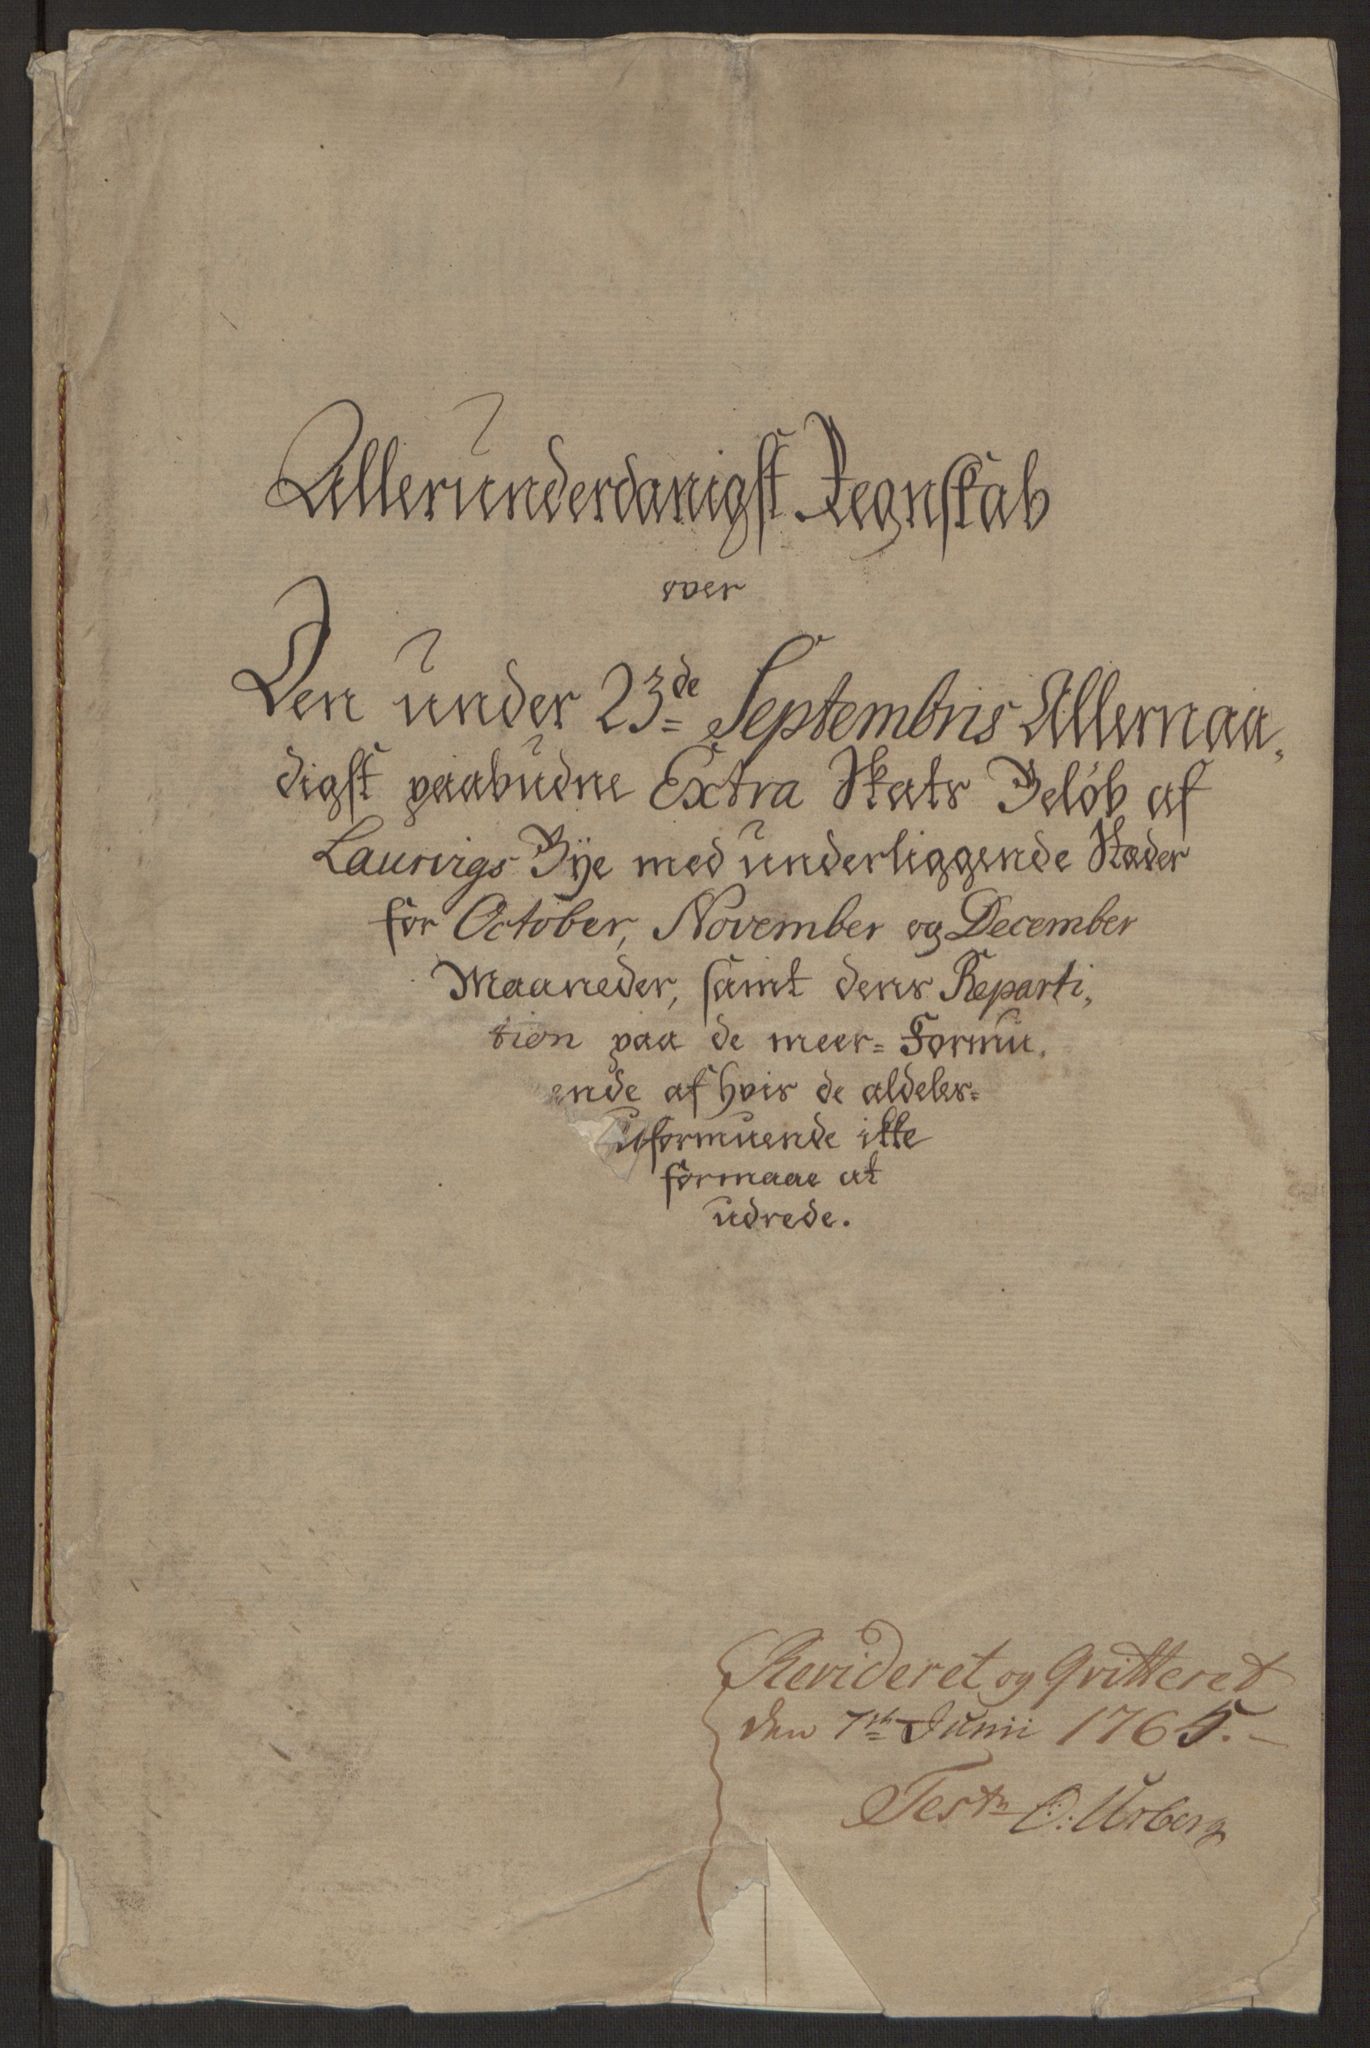 Allerunderdanigst Regnskab
over
Den under 23de Septembris Allernaa,
digst paabudne Extra Skats Beløb af
Laurvigs Bye med underliggende Stæder
for October, November og December
Maaneder, samt dens Reparti,
tion paa de meer= Formu,
ende af hvis de aldeles=
Uformuende ikke
formaae at
udrede.
Revideret og Qvitteret
den 7de Junii 1765.
Test O: Urberg